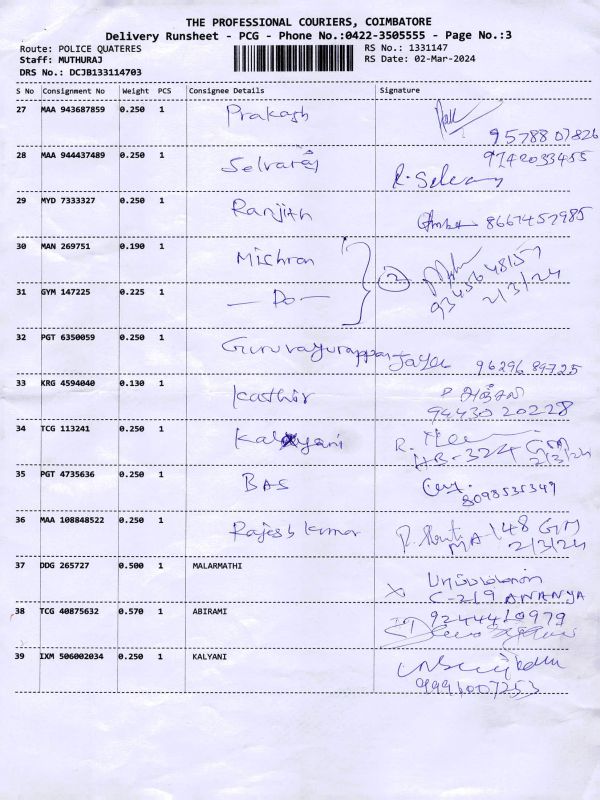 THE PROFESSIONAL COURIERS, COIMBATORE
Delivery Runsheet - PCG - Phone No.:0422-3505555 - Page No.:3
Route: POLICE QUATERES RS No.: 1331147
Staff: MUTHURAJ RS Date: 02-Mar-2024
DRS No.: DCJB133114703
S No Consignment No Weight PCS Consignee Details Signature
27 MAA 943687859 0.250 1 Prakash
95788 07826
28 MAA 944437489 0.250 1 Selvaraj 9742033455
29 MYD 7333327 0.250 1 Ranjith 8667457985
30 MAN 269751 0.190 1 Mithran 2 9345648157
2/3/24
31 GYM 147225 0.225 1 — Do —
32 PGT 6350059 0.250 1 Guruvayurappan Jaya 96296 89725
33 KRG 4594040 0.130 1 Kathir
94430 20228
34 TCG 113241 0.250 1 Kalyani R.
HB-324 GM
2/3/24
35 PGT 4735636 0.250 1 BAS
8098535349
36 MAA 108848522 0.250 1 Rajesh kumar
MA-148 GM
2/3/24
37 DDG 265727 0.500 1 MALARMATHI
C-219 ANANYA
38 TCG 40875632 0.570 1 ABIRAMI 9244410979
39 IXM 506002034 0.250 1 KALYANI
9994007253